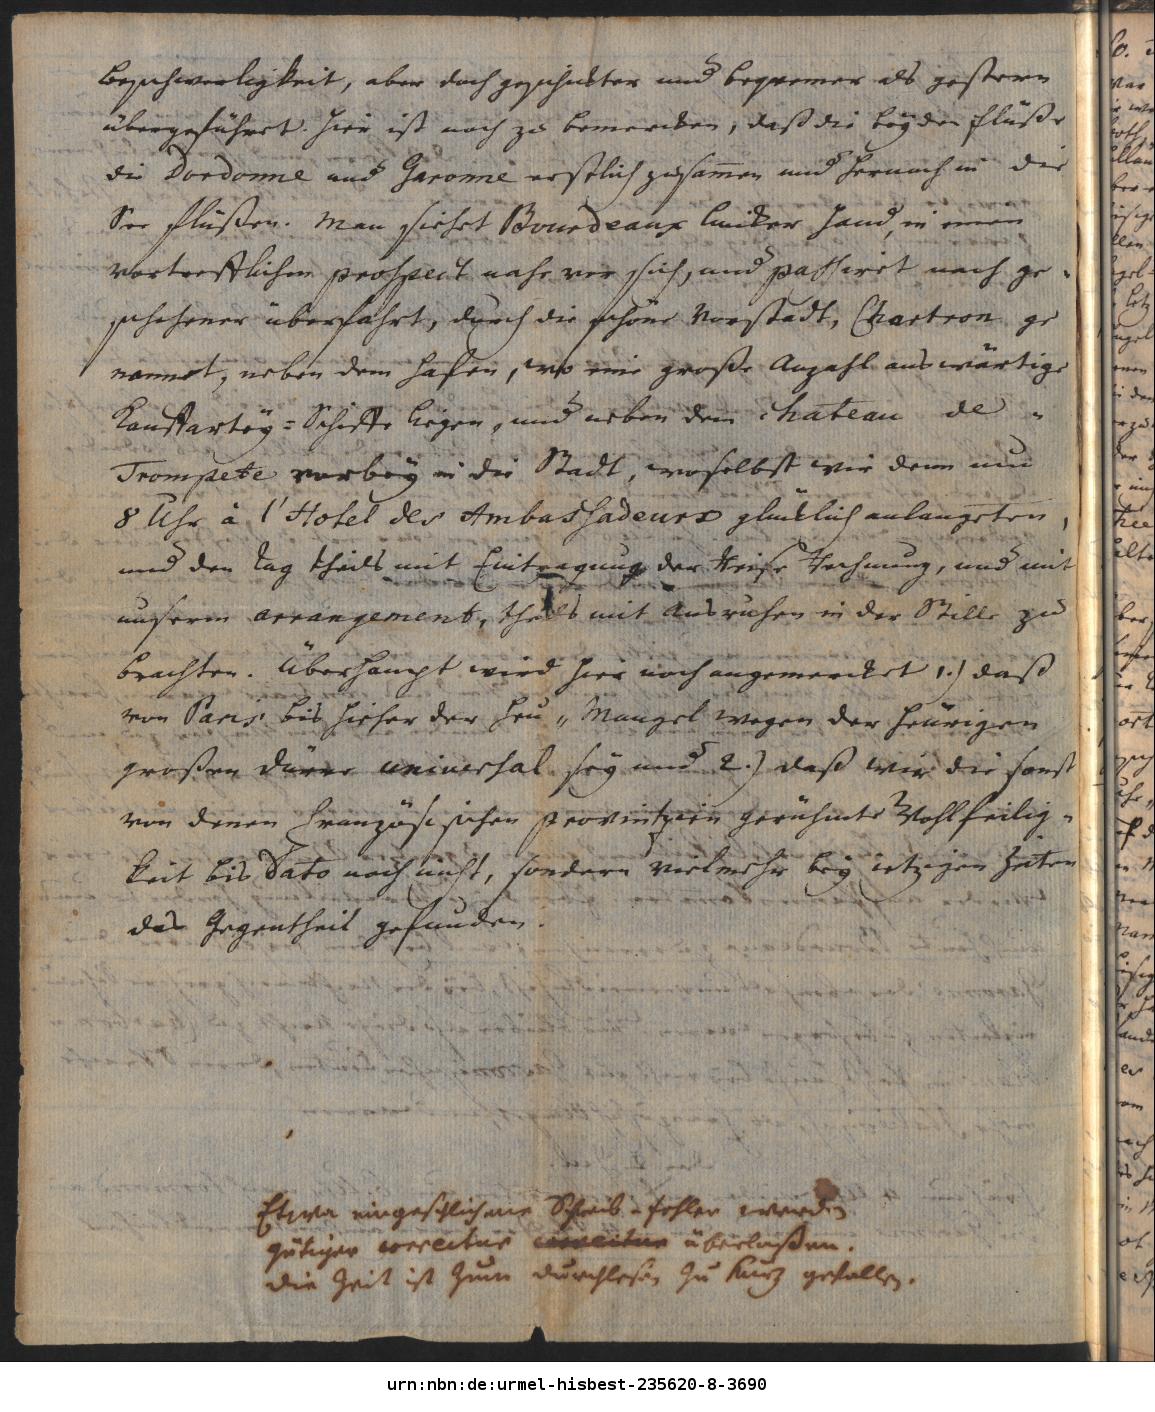 beschwerligkeit, aber doch geschickter und bequemer als gestern
übergeführet. Hier ist noch zu bemercken, daß die beyden Flüße
die Dordonne und Garonne erstlich zusam̄en und hernach in die
See flüßen. Man siehet Bourdeaux lincker Hand, in einem
vortrefflichen prospect nahe vor sich, und passiret nach ge-
schehener überfahrt, durch die schöne Vorstadt, Chartron ge
nennet, neben dem Hafen, wo eine große Anzahl auswärtige
Kauffartey=Schiffe liegen, und neben dem chateau de "
Trompete vorbey in die Stadt, woselbst wir denn um
8 Uhr à l'Hotel des Ambassadeurs glücklich anlangeten,
und den tag theils mit Eintragung der Reise Rechnung, und mit
unserm arrangement, theils mit Ausruhen in der Stille zu
brachten. Überhaupt wird hier noch angemercket 1.) daß
von Paris bis hieher der Heu „ Mangel wegen der heürigen
großen Dürre universal sey und 2.) daß wir die sonst
von denen Französischen provintzien gerühmte Wohlfeilig-
keit bis Dato noch nicht, sondern vielmehr bey ietzigen Zeiten
das Gegentheil gefunden.
Etwa eingeschlichene Schreib-fehler werden
gütiger correctur correctur überlaßen.
die Zeit ist zum durchlesen zu kurz gefallen.
urn:nbn:de:urmel-hisbest-235620-8-3690